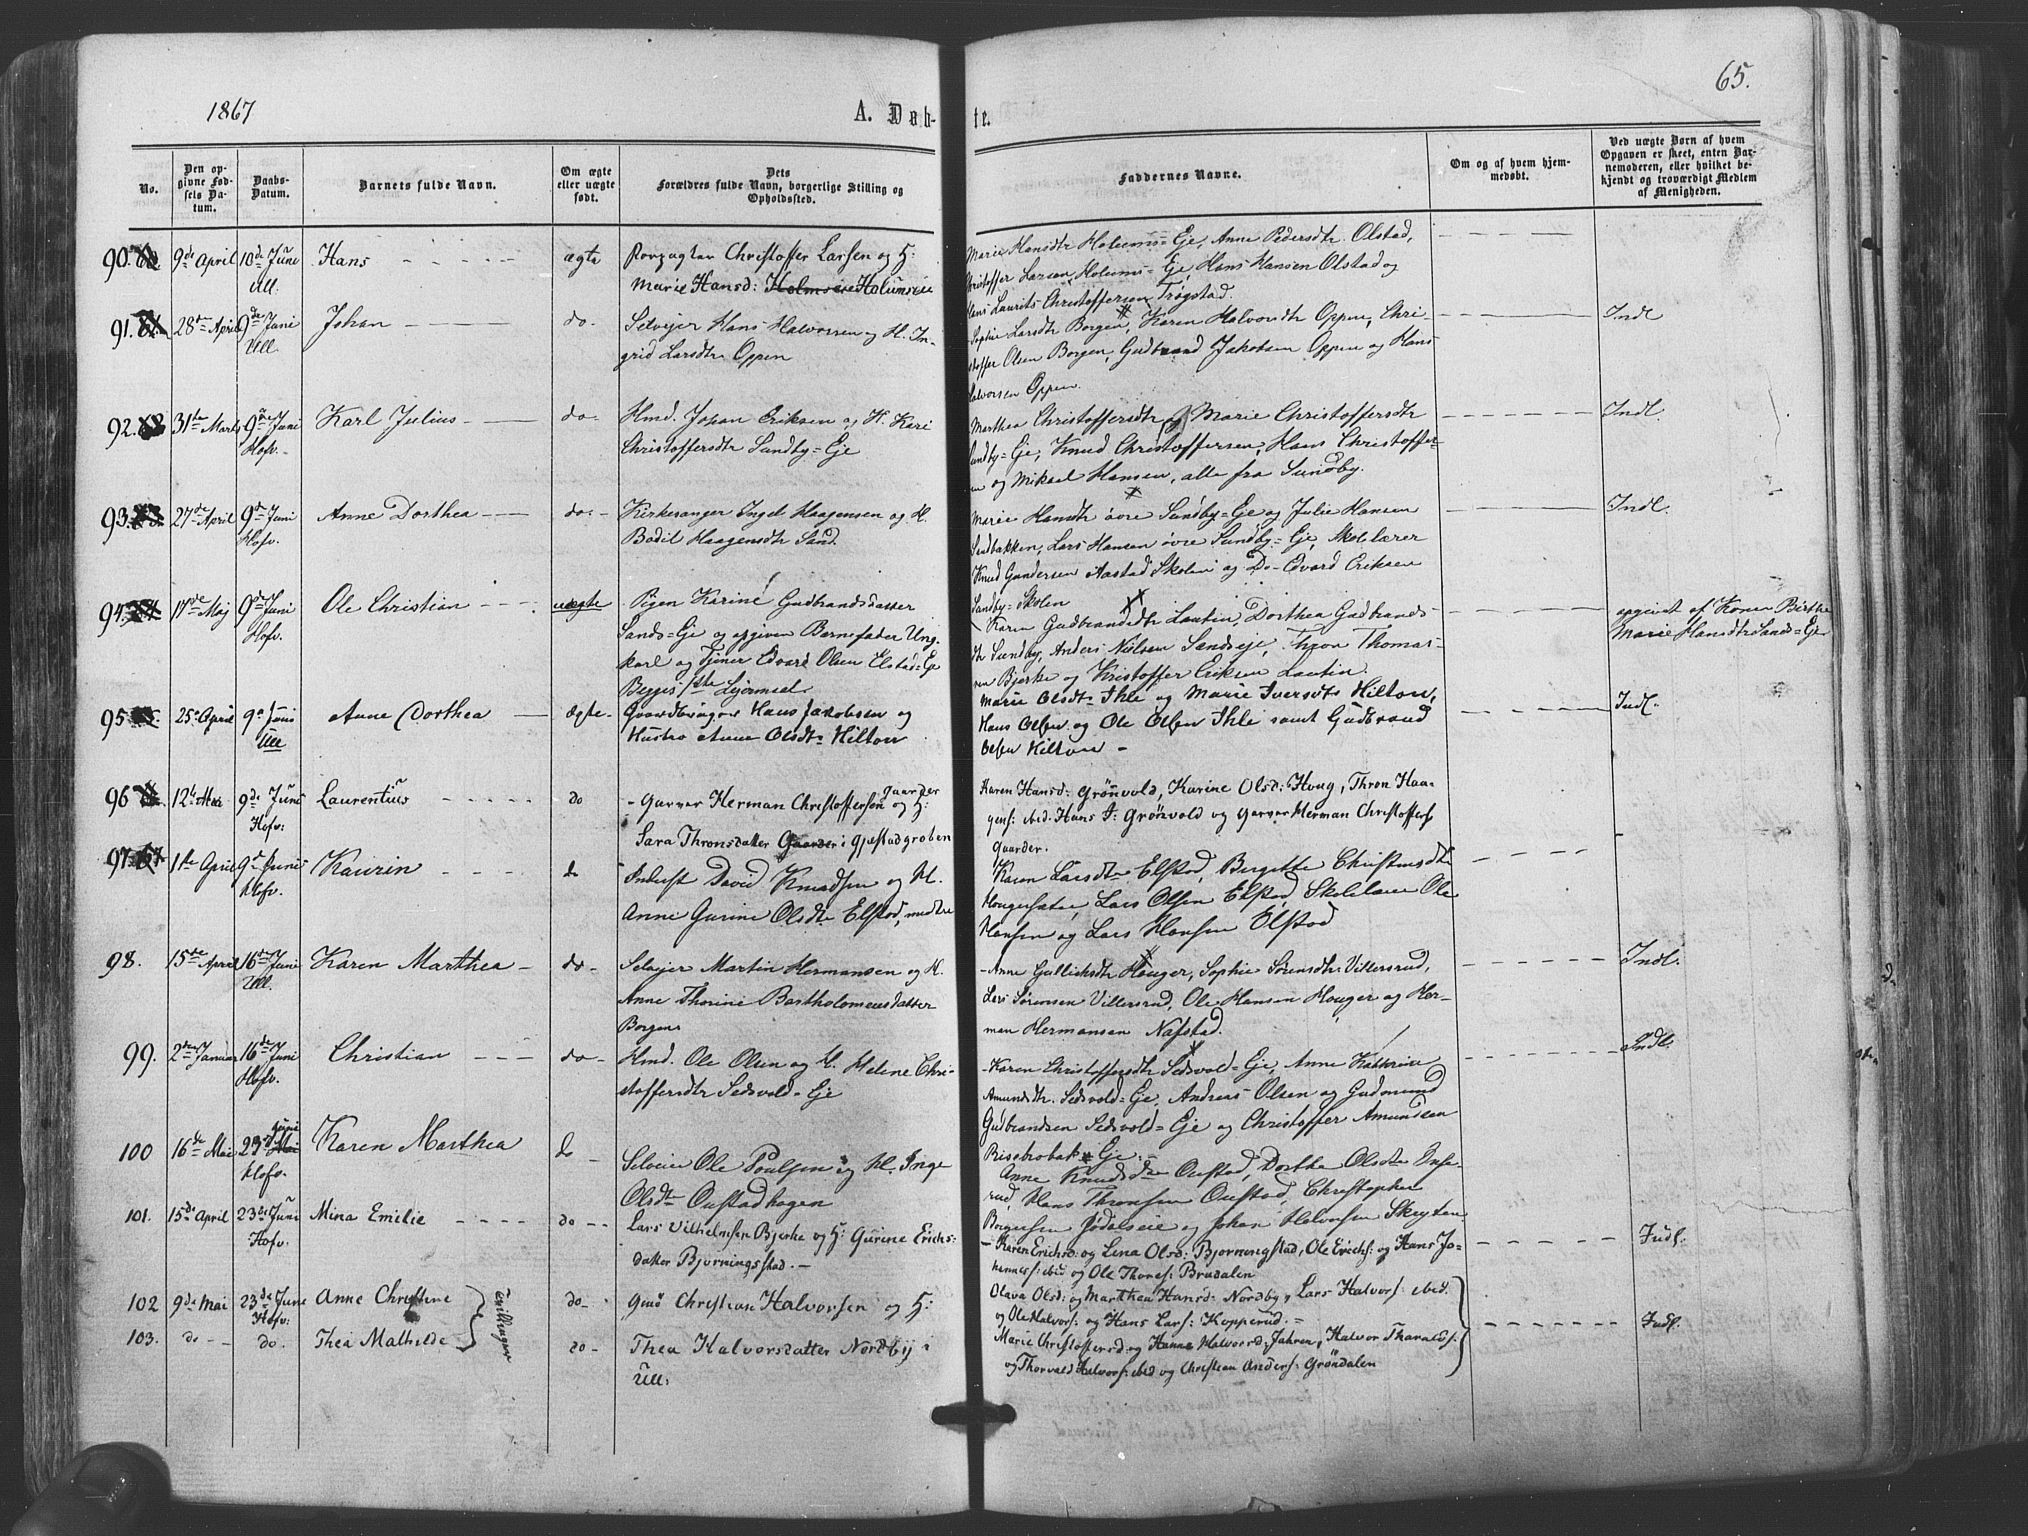 1867
A. Døb-
te.
65.
No.
Den op-
givne Fød-
sels Da-
tum.
Daabs-
Datum.
Barnets fulde Navn.
Om ægte
eller uægte
født.
Dets
Forældres fulde Navn, borgerlige Stilling og
Opholdssted.
Faddernes Navne.
Om og af hvem hjem-
medøbt.
Ved uægte Børn af hvem
Opgaven er skeet, enten Bar-
nemoderen, eller hvilket be-
kjendt og troværdigt Medlem
af Menigheden.
90. 9de April 10de Juni Hans ægte Christoffer Larsen og H:
Ull. Marie Hansd: Holmseie Holumseie
Marie Hansdtr Holums=Eje, Anne Pedersdtr. Olstad,
Christoffer Larsen Holums=Eje, Hans Hansen Olstad og
Hans Laurits Christoffersen Trøgstad.
91. 28de April 9de Juni Johan do. Selvejer Hans Halvorsen og H. In-
Ull. grid Larsdtr Oppen
Sophie Larsdtr Borgen, Karen Halvorsdtr Oppen, Chri- Indl
stoffer Olsen Borgen, Gudbrand Jakobsen Oppen og Hans
Halvorsen Oppen.
92. 31te Marts 9de Juni Karl Julius do. Hmd. Johan Eriksen og H. Kari
Hofv. Christoffersdtr Sundby=Eje
Marthea Christoffersdtr og Marie Christoffersdtr Indl.
Sundby=Eje, Knud Christoffersen, Hans Christoffer-
sen og Mikael Hansen, alle fra Sundby.
93. 27de April 9de Juni Anne Dorthea do. Kirkesanger Ingel Haagensen og H.
Hofv. Bodil Haagensdtr Sand.
Marie Hansdtr øvre Sundby=Eje og Julie Hansen Indl.
Sandbakken, Lars Hansen øvre Sundby=Eje, Skolelærer
Knud Gundersen Aastad Skolen og Do- Edvard Eriksen
Sundby=Skolen
94. 17de Maj 9de Juni Ole Christian uægte Pigen Karine Gudbrandsdatter
Hofv. Sands=Eje og opgiven Barnefader Ung-
karl og Tjener Edvard Olsen Elstad=Eje
Karen Gudbrandsdtr Lautin, Dorthea Gudbrands- opgivet af Konen Birthe
dtr Sundby, Anders Nielsen Sandseje, Thron Thomas- Marie Hansdtr Sands=Eje
sen Bjerke og Kristoffer Eriksen Lautin.
95. 25de April 9de Juni Anne Dorthea ægte Gaardbruger Hans Jakobsen og
Ull Hustro Anne Olsdtr Hilton
Marie Olsdtr Ihle og Marie Iversdtr Hilton, Indl.
Hans Olsen og Ole Olsen Ihle samt Gudbrand
Olsen Hilton -
96 12te Mai 9de Juni Laurentius do Garver Herman Christoffersen Gaarder og H:
Hofv: Sara Thronsdatter Gaarder i Gjestadgroben
Karen Hansd: Grönvold, Karine Olsd: Houg, Thron Haa-
gens: ibid: Hans J: Grönvold og Garver Herman Christoffers:
Gaarder.
97. 1ste April 9de Juni Kaurin do Inderst David Knudsen og H.
Hofv. Anne Gurine Olsdtr Elstad, medtre
Karen Larsdtr Elstad, Bergitte Christensdtr
Lars Olsen Elstad, Skolelærer Ole
Hansen og Lars Hansen Elstad
98. 15de April 16de Juni Karen Marthea do Selvejer Martin Hermansen og H.
Ull. Anne Thorine Bartholomeusdatter
Borgen
Anne Gulliksdtr Houger, Sophie Sørensdtr. Villersrud, Indl.
Lars Sørensen Villersrud, Ole Hansen Houger og Her-
man Hermansen Nafstad.
99. 2den Januar 16de Juni Christian do Hmd. Ole Olsen og H. Helene Chri-
Hofv. stoffersdtr Sedsvold=Eje
Karen Christoffersdtr Sedsvold=Eje, Anne Kathrine Indl.
Amundsdtr. Sedsvold=Eje, Andreas Olsen og Gudmund
Gudbrandsen Sedsvold=Eje og Christoffer Amundsen
Risebrobak=Eje.
100 16de Mai 23de Juni Karen Marthea do Selveier Ole Poulsen og H. Inge
Hofv. Olsdtr Oustadhagen
Anne Knudsdtr Oustad, Dorthe Olsdtr Inse-
rud, Hans Thronsen Oustad, Christopher
Borgersen Jødalseie og Johan Halvorsen Skryten
101. 15de April 23de Juni Mina Emilie do Lars Vilhelmsen Bjerke og H: Gurine Erichs-
Hofv. datter Bjorningstad.
Karen Erichsd: og Lina Olsd: Bjorningstad, Ole Erichs: og Hans Jo- Indl.
hannes: ibid og Ole Thores: Brudalen
102 9de Mai 23de Juni Anne Christine Tvillinger do Gmd Christian Halvorsen og H:
Hofv:
Olava Olsd: og Marthea Hansd: Nordby, Lars Halvors: ibid.
og Ole Halvors: og Hans Lars: Kopperud.
103. do do. Thea Mathilde do Thea Halvorsdatter Nordby i
Ull:
Marie Christoffersd og Hanna Halvorsd: Jahren, Halvor Tharalds: Indl.
og Thorvald Halvors: ibid og Christian Anders: Gröndalen